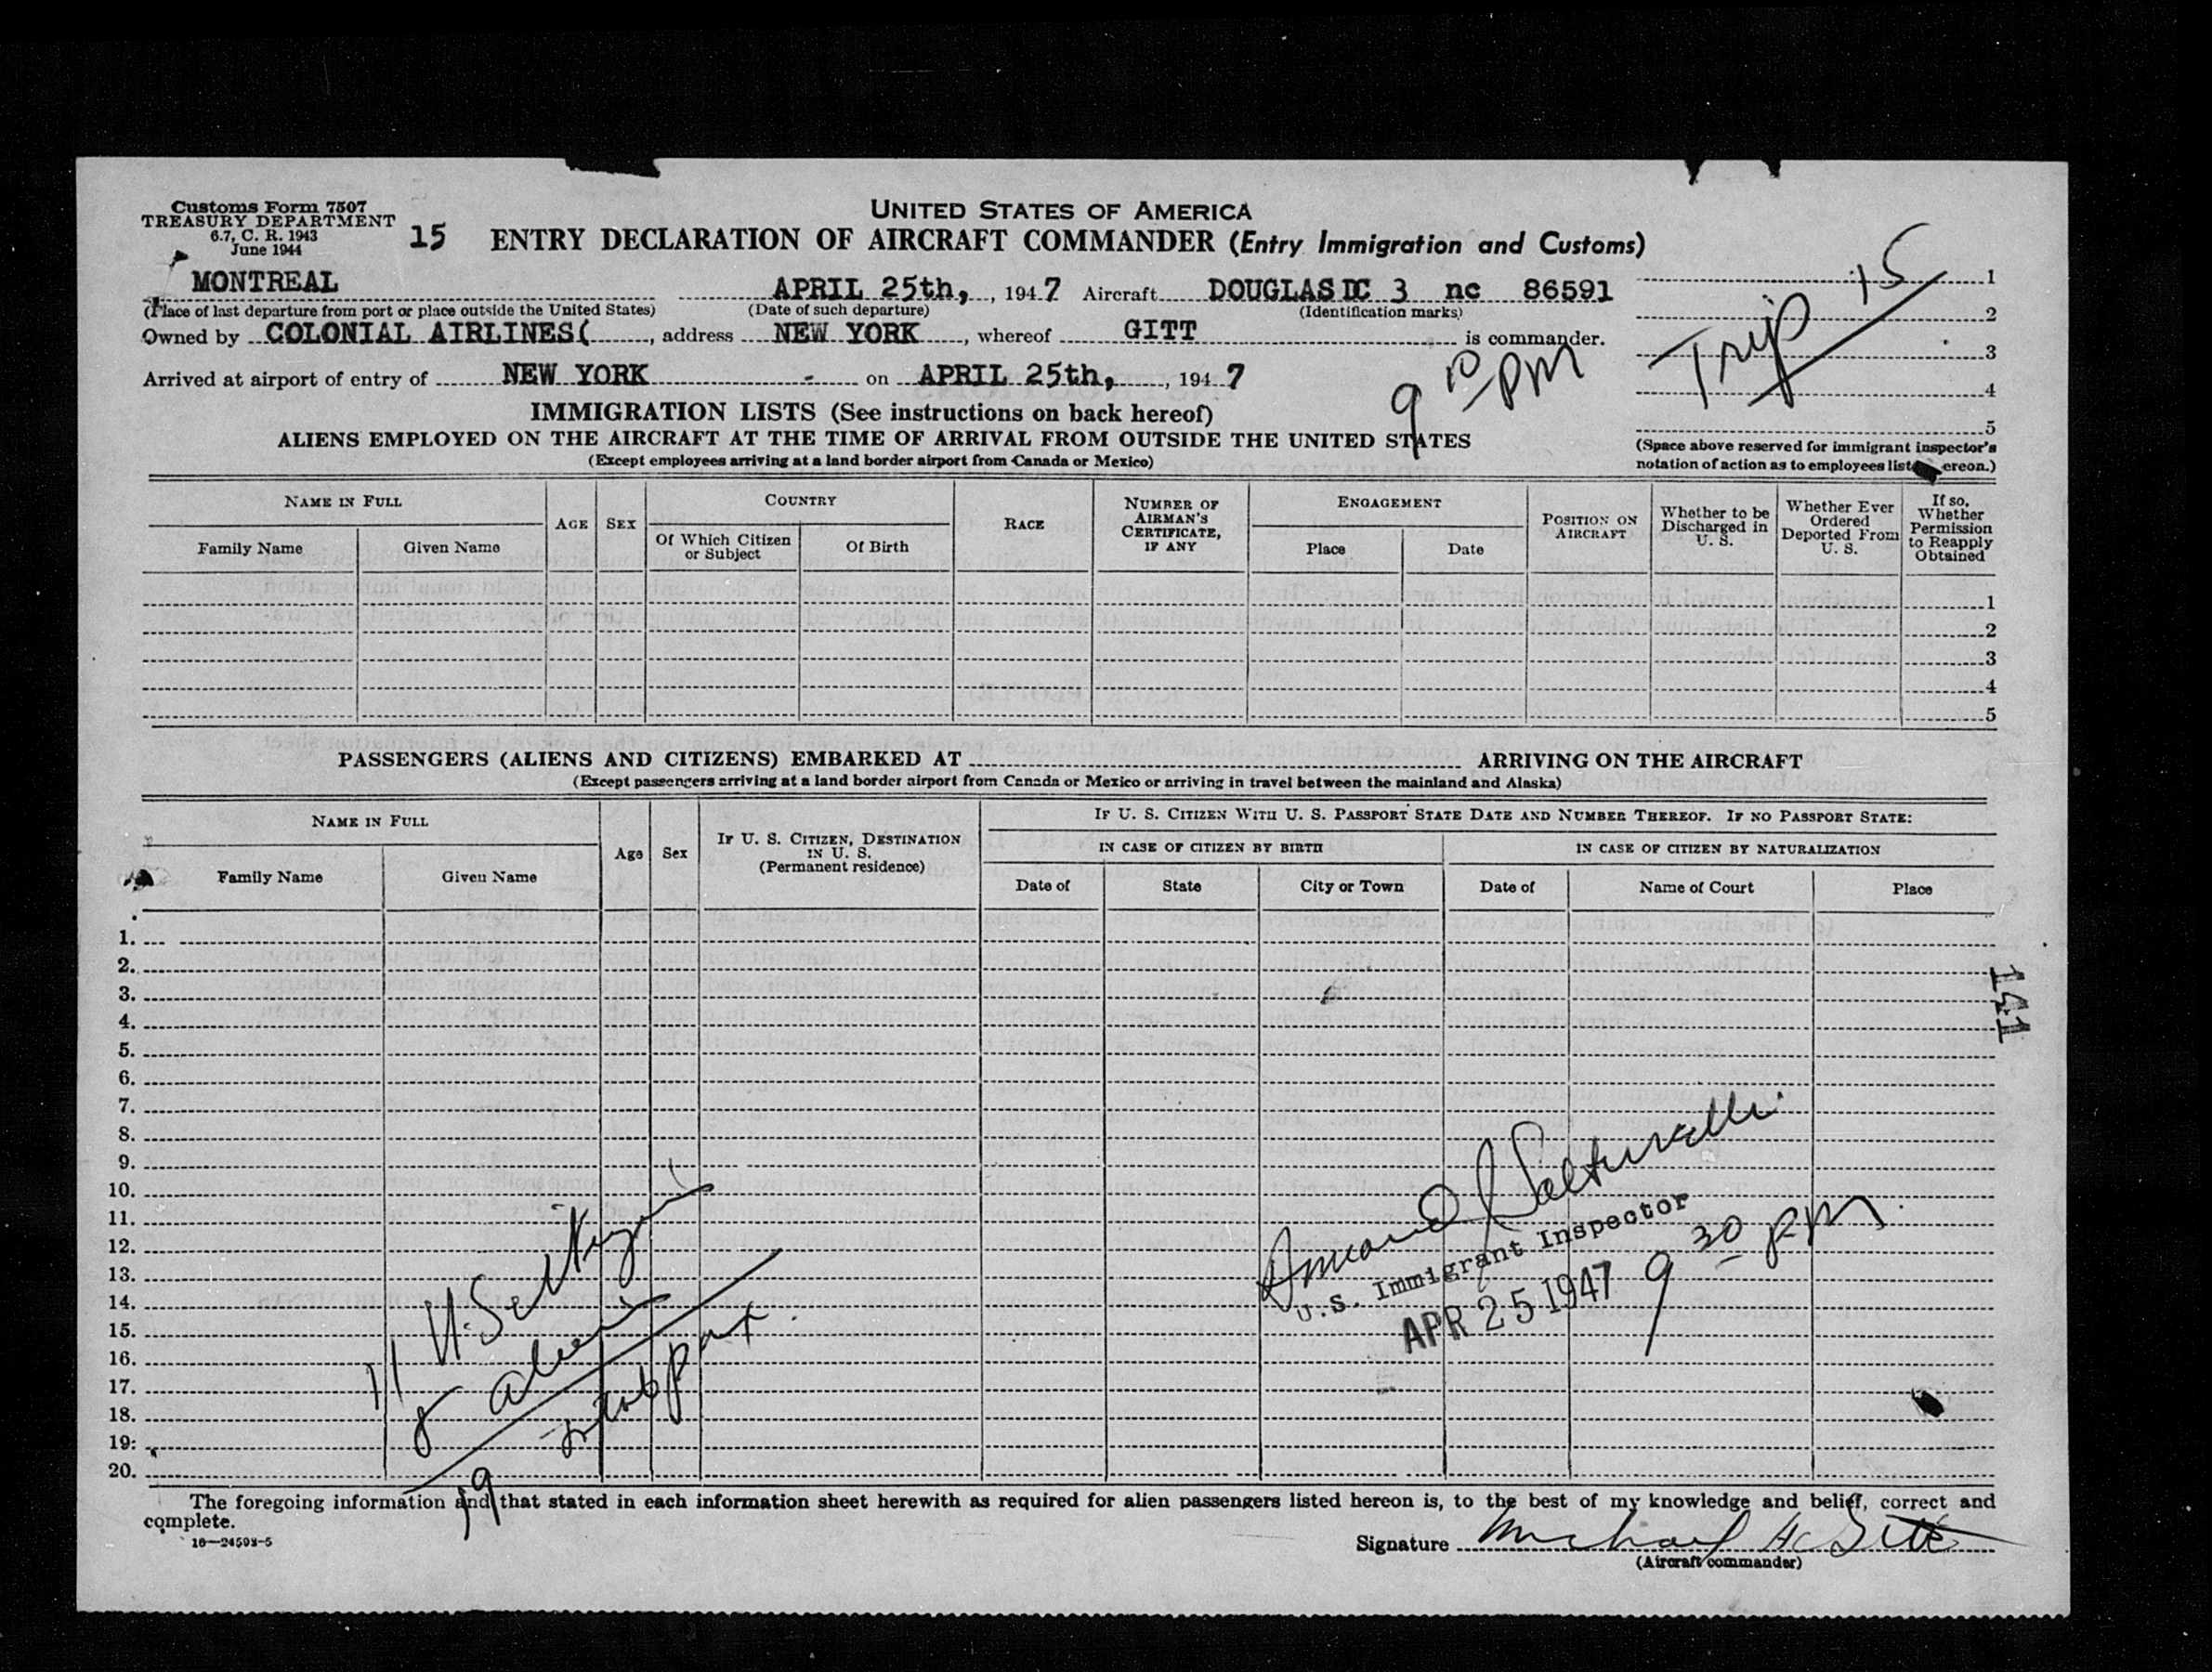 Customs Form 7507
TREASURY DEPARTMENT
6.7, C. R. 1943
June 1944
15
UNITED STATES OF AMERICA
ENTRY DECLARATION OF AIRCRAFT COMMANDER (Entry Immigration and Customs)
MONTREAL APRIL 25th, , 1947 Aircraft DOUGLAS DC 3 nc 86591
(Place of last departure from port or place outside the United States) (Date of such departure) (Identification marks)
Owned by COLONIAL AIRLINES( , address NEW YORK , whereof GITT is commander.
Arrived at airport of entry of NEW YORK - on APRIL 25th, , 1947
9 10 PM
Trip 15
1
2
3
4
5
(Space above reserved for immigrant inspector's
notation of action as to employees list ereon.)
IMMIGRATION LISTS (See instructions on back hereof)
ALIENS EMPLOYED ON THE AIRCRAFT AT THE TIME OF ARRIVAL FROM OUTSIDE THE UNITED STATES
(Except employees arriving at a land border airport from Canada or Mexico)
NAME IN FULL
Family Name
Given Name
AGE
SEX
COUNTRY
Of Which Citizen
or Subject
Of Birth
RACE
NUMBER OF
AIRMAN'S
CERTIFICATE,
IF ANY
ENGAGEMENT
Place
Date
POSITION ON
AIRCRAFT
Whether to be
Discharged in
U. S.
Whether Ever
Ordered
Deported From
U. S.
If so,
Whether
Permission
to Reapply
Obtained
1
2
3
4
5
PASSENGERS (ALIENS AND CITIZENS) EMBARKED AT ARRIVING ON THE AIRCRAFT
(Except passengers arriving at a land border airport from Canada or Mexico or arriving in travel between the mainland and Alaska)
NAME IN FULL
Family Name
Given Name
Age
Sex
IF U. S. CITIZEN, DESTINATION
IN U. S.
(Permanent residence)
IF U. S. CITIZEN WITH U. S. PASSPORT STATE DATE AND NUMBER THEREOF. IF NO PASSPORT STATE:
IN CASE OF CITIZEN BY BIRTH
IN CASE OF CITIZEN BY NATURALIZATION
Date of
State
City or Town
Date of
Name of Court
Place
1.
2.
3.
4.
5.
6.
7.
8.
9.
10.
11.
12.
13.
14.
15.
16.
17.
18.
19.
20.
141
11 U.S.
8 aliens
19 pax.
Armand
U.S. Immigrant Inspector
APR 25 1947 9 30 PM
The foregoing information and that stated in each information sheet herewith as required for alien passengers listed hereon is, to the best of my knowledge and belief, correct and
complete.
16—24598-5
Signature Michael H Gitt
(Aircraft commander)